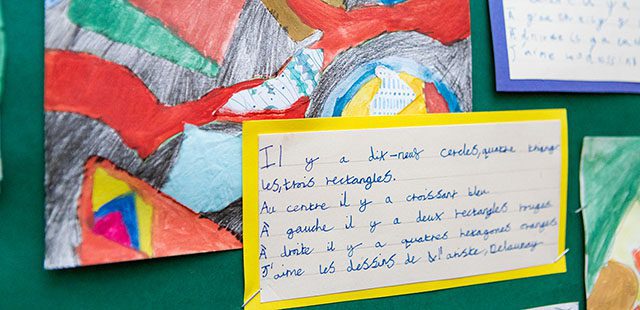 Il y a dix-neuf cercles, quatre triang
les, trois rectangles.
Au centre il y a croissant bleu
À gauche il y a deux rectangles rouges
À droite il y a quatres hexagones oranges
J'aime les dessins de l'artiste, Delaunay
J'aime les dessins